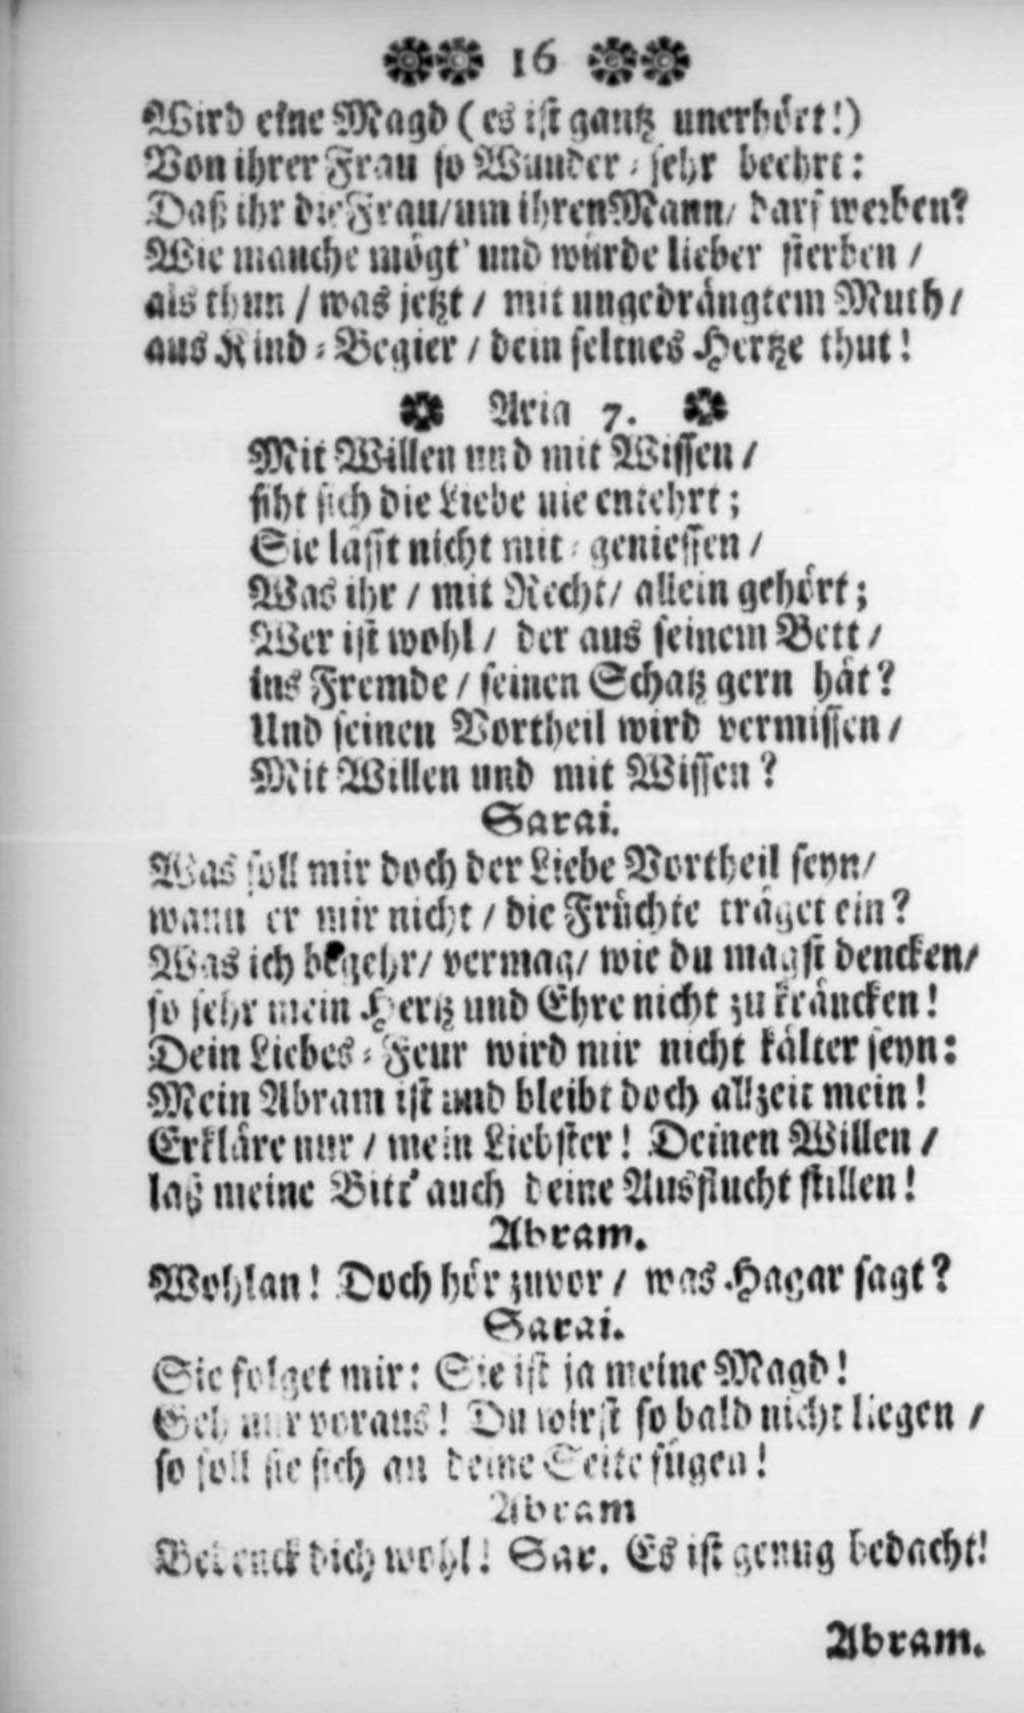 16
Wird eine Magd (es ist gantz unerhört!)
Von ihrer Frau so Wunder-sehr beehrt:
Daß ihr die Frau/um ihren Mann/ darf werben?
Wie manche mögt' und würde lieber sterben /
als thun / was jetzt / mit ungedrängtem Muth /
aus Kind-Begier / dein seltnes Hertze thut!
Aria 7.
Mit Willen und mit Wissen /
siht sich die Liebe nie entehrt;
Sie lässt nicht mit-geniessen /
Was ihr / mit Recht/ allein gehört;
Wer ist wohl / der aus seinem Bett /
ins Fremde / seinen Schatz gern hät?
Und seinen Vortheil wird vermissen /
Mit Willen und mit Wissen?
Sarai.
Was soll mir doch der Liebe Vortheil seyn/
wann er mir nicht / die Früchte träget ein?
Was ich begehr/ vermag/ wie du magst dencken/
so sehr mein Hertz und Ehre nicht zu kräncken!
Dein Liebes-Feur wird mir nicht kälter seyn:
Mein Abram ist und bleibt doch allzeit mein!
Erkläre nur / mein Liebster! Deinen Willen /
laß meine Bitt' auch deine Ausflucht stillen!
Abram.
Wohlan! Doch hör zuvor / was Hagar sagt?
Sarai.
Sie folget mir: Sie ist ja meine Magd!
Geh nur voraus! Du wirst so bald nicht liegen /
so soll sie sich an deine Seite fügen!
Abram
Bedenck dich wohl! Sar. Es ist genug bedacht!
Abram.